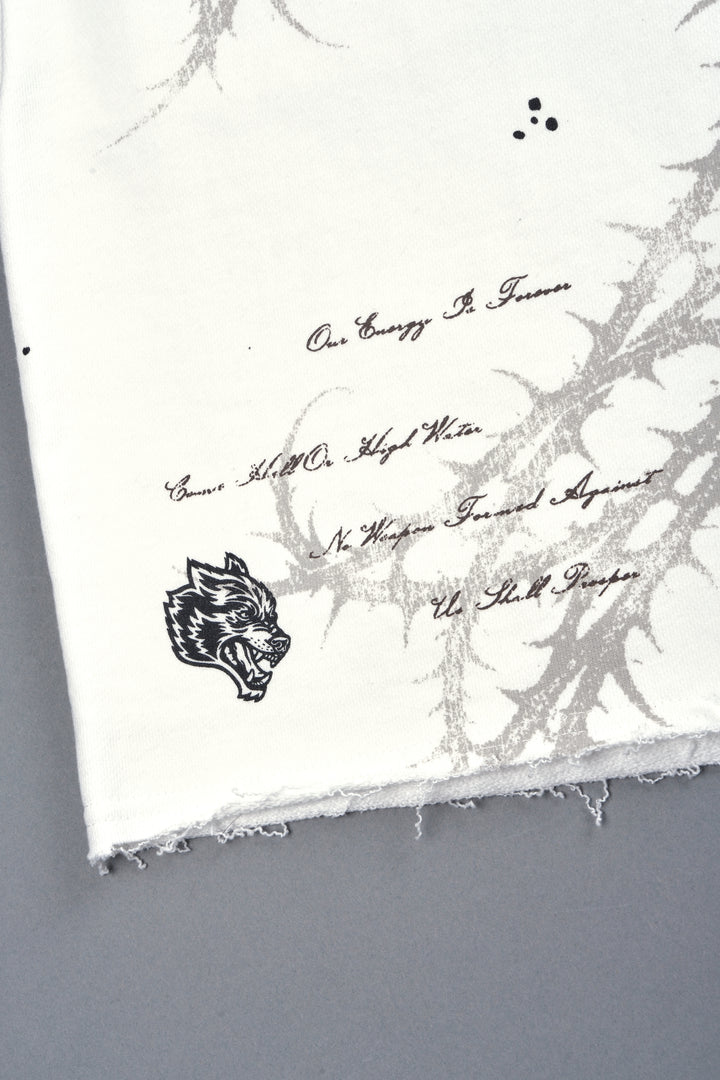 Our Energy Is Forever
Come Hell Or High Water
No Weapon Formed Against
Us Shall Prosper